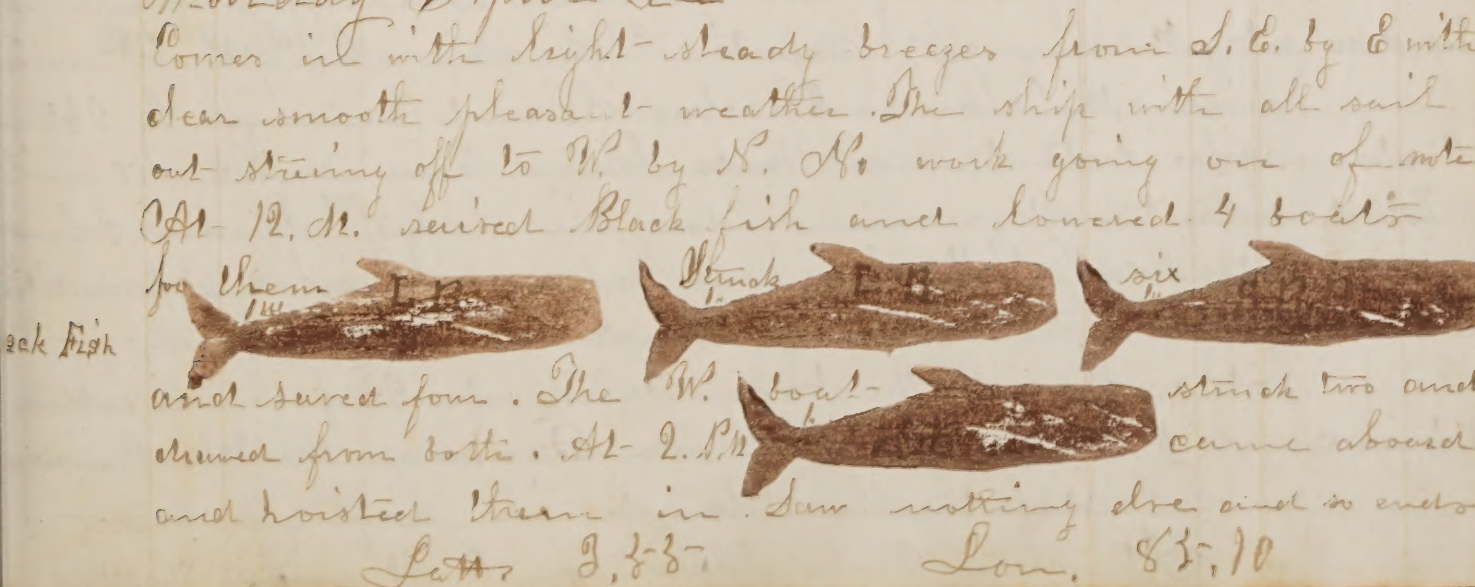 Comes in with light steady breezes from S. E. by E with
clear smooth pleasant weather. The ship with all sail
out streing off to W. by N. No work going on of note
At 12. M. Black fish and lowered 4 boats
for them Struck six
Fish
and saved four. The W. boat struck two and
drawed from both. At 2. P.M. came aboard
and hoisted them in. Saw nothing else and so ends
Latt. 3,55 Lon. 85,10